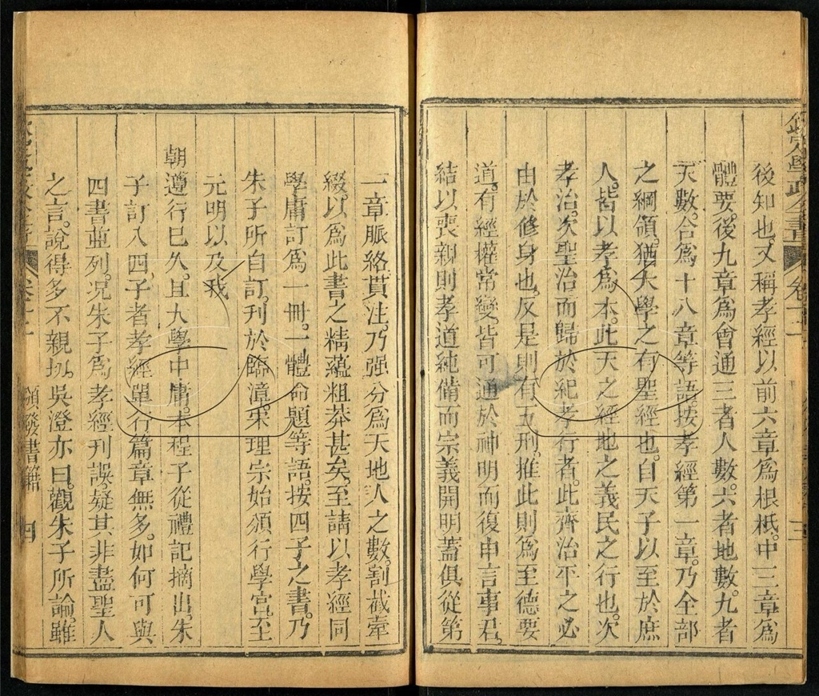 欽定學政全書 卷十二 三
後知也又稱孝經以前六章爲根柢中三章爲
體要後九章爲會通三者人數六者地數九者
天數合爲十八章等語按孝經第一章乃全部
之綱領猶大學之有聖經也自天子以至於庶
人皆以孝爲本此天之經地之義民之行也次
孝治次聖治而歸於紀孝行者此齊治平之必
由於修身也反是則有五刑推此則爲至德要
道有經權常變皆可通於神明而復申言事君
結以喪親則孝道純備而宗義開明蓋俱從第
一章脈絡貫注乃强分爲天地人之數割截牽
綴以爲此書之精蘊粗莽甚矣至請以孝經同
學庸訂爲一冊一體命題等語按四子之書乃
朱子所自訂刊於臨漳宋理宗始頒行學宮至
元明以及我
朝遵行已久且大學中庸本程子從禮記摘出朱
子訂入四子者孝經單行篇章無多如何可與
四書並列況朱子爲孝經刊誤疑其非盡聖人
之言說得多不親切吳澄亦曰觀朱子所論雖
卷十二 頒發書籍 四